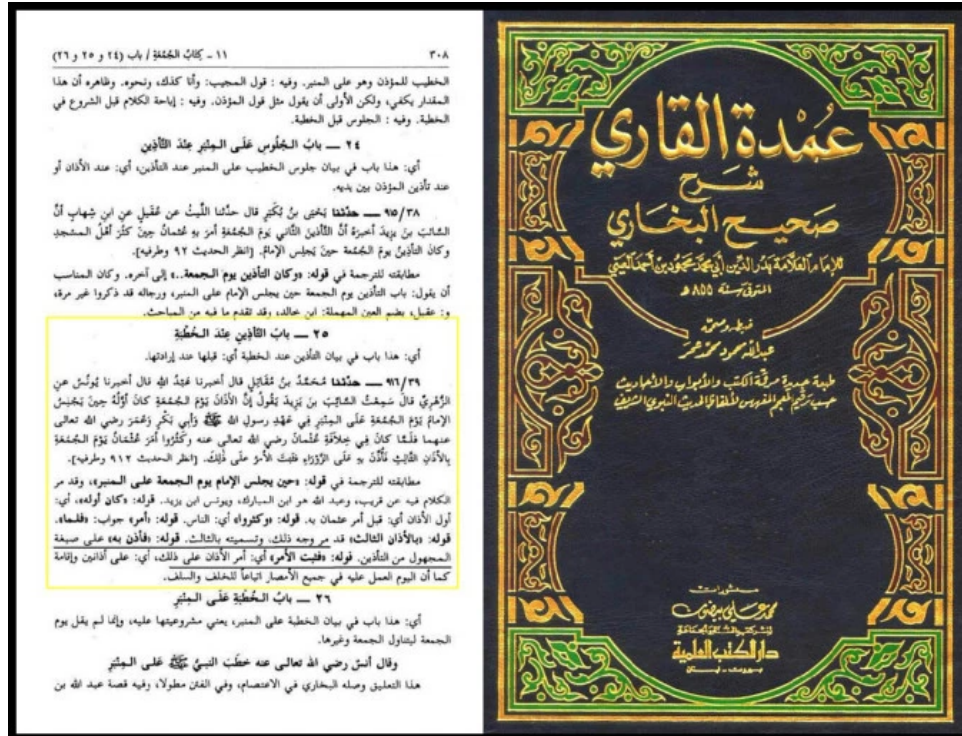 ٣٠٨
١١ ـ كِتابُ الجُمُعَةِ / باب (٢٤ و ٢٥ و ٢٦)
الخطيب للمؤذن وهو على المنبر. وفيه : قول المجيب: وأنا كذلك، ونحوه. وظاهره أن هذا
المقدار يكفي، ولكن الأولى أن يقول مثل قول المؤذن. وفيه : إباحة الكلام قبل الشروع في
الخطبة. وفيه : الجلوس قبل الخطبة.
٢٤ ــ بابُ الجُلُوسِ عَلَى المِنْبَرِ عِنْدَ التَّأْذِينِ
أي: هذا باب في بيان جلوس الخطيب على المنبر عند التأذين، أي: عند الأذان أو
عند تأذين المؤذن بين يديه.
٩١٥/٣٨ ــ حدَّثنا يَحْيَى بنُ بُكَيْرٍ قال حدَّثنا اللَّيثُ عن عُقَيلٍ عنِ ابنِ شِهابٍ أنَّ
السَّائِبَ بنَ يَزِيدَ أخبرَهُ أنَّ التَّأذِينَ الثَّانِي يَومَ الجُمُعَةِ أمَرَ بِهِ عُثمانُ حِينَ كَثُرَ أهْلُ المسْجِدِ
وكانَ التأذِينُ يومَ الجُمُعَةِ حينَ يَجلِسُ الإمامُ. [انظر الحديث ٩١٢ وطرفيه].
مطابقته للترجمة في قوله: «وكان التأذين يوم الجمعة..» إلى آخره. وكان المناسب
أن يقول: باب التأذين يوم الجمعة حين يجلس الإمام على المنبر، ورجاله قد ذكروا غير مرة،
و: عقيل، بضم العين المهملة: ابن خالد، وقد تقدم ما فيه من المباحث.
٢٥ ــ بابُ التَّأذِينِ عِنْدَ الخُطْبَةِ
أي: هذا باب في بيان التأذين عند الخطبة أي: قبلها عند إرادتها.
٩١٦/٣٩ ــ حدَّثنا مُحَمَّدُ بنُ مُقَاتِلٍ قال أخبرنا عَبْدُ الله قال أخبرنا يُونُسُ عنِ
الزُّهْرِيِّ قالَ سَمِعْتُ السَّائِبَ بنَ يَزِيدَ يَقُولُ إنَّ الأذَانَ يَوْمَ الجُمُعَةِ كانَ أوَّلُهُ حِينَ يَجْلِسُ
الإمامُ يَوْمَ الجُمُعَةِ عَلَى المِنْبَرِ فِي عَهْدِ رسولِ الله ﷺ وَأبِي بَكْرٍ وَعُمَرَ رضي الله تعالى
عنهما فلَمَّا كانَ فِي خِلاَفَةِ عُثْمانَ رضي الله تعالى عنه وكَثُرُوا أمَرَ عُثْمَانُ يَوْمَ الجُمُعَةِ
بِالأذَانِ الثَّالِثِ فَأُذِّنَ بِهِ عَلَى الزَّوْرَاءِ فثَبَتَ الأمرُ علَى ذَلِكَ. [انظر الحديث ٩١٢ وطرفيه].
مطابقته للترجمة في قوله: «حين يجلس الإمام يوم الجمعة على المنبر»، وقد مر
الكلام فيه عن قريب، وعبد الله هو ابن المبارك، ويونس ابن يزيد. قوله: «كان أوله»، أي:
أول الأذان أي: قبل أمر عثمان به. قوله: «وكثروا» أي: الناس. قوله: «أمر» جواب: «فلما».
قوله: «بالأذان الثالث» قد مر وجه ذلك، وتسميته بالثالث. قوله: «فأذن به» على صيغة
المجهول من التأذين. قوله: «فثبت الأمر» أي: أمر الأذان على ذلك، أي: على أذانين وإقامة
كما أن اليوم العمل عليه في جميع الأمصار اتباعاً للخلف والسلف.
٢٦ ــ بابُ الخُطْبَةِ عَلَى المِنْبَرِ
أي: هذا باب في بيان الخطبة على المنبر، يعني مشروعيتها عليه، وإنما لم يقل يوم
الجمعة ليتناول الجمعة وغيرها.
وقال أنسٌ رضي الله تعالى عنه خطَبَ النبيُّ ﷺ عَلَى المِنْبَرِ
هذا التعليق وصله البخاري في الاعتصام، وفي الفتن مطولا، وفيه قصة عبد الله بن
عُمْدة القاري
شرح
صحيح البخاري
للإمام العلامة بدر الدين أبي محمد محمود بن أحمد العيني
المتوفى سنة ٨٥٥ هـ
ضبطه وصححه
عبد الله محمود محمد عمر
طبعة جديدة مرقمة الكتب والأبواب والأحاديث
حسب ترقيم المعجم المفهرس لألفاظ الحديث النبوي الشريف
منشورات
محمد علي بيضون
لنشر كتب السنة والجماعة
دار الكتب العلمية
بيروت - لبنان